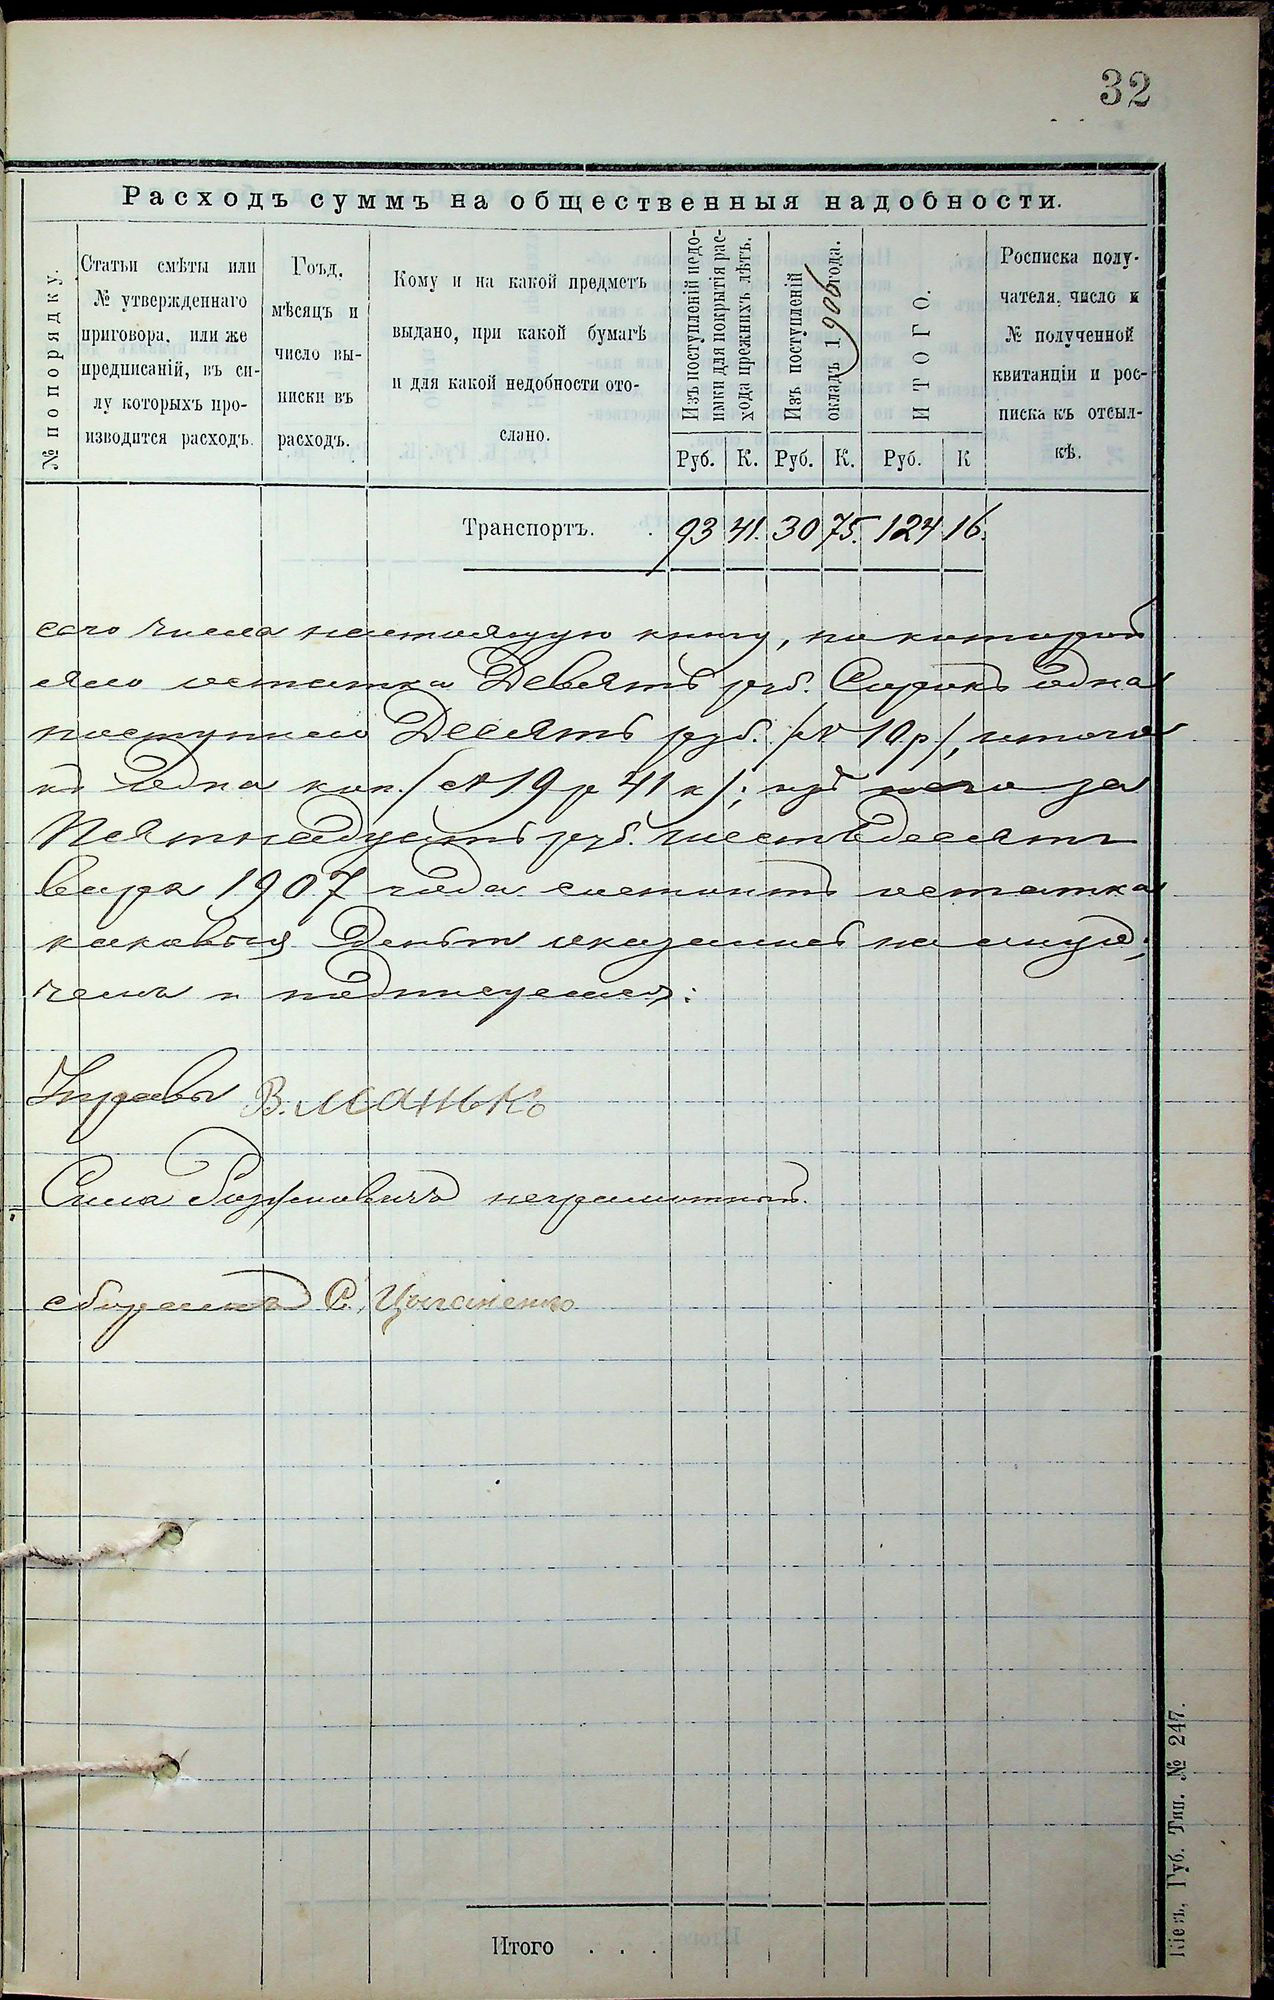 32
Расходъ суммъ на общественныя надобности.
№ по порядку.
Статьи смѣты или
№ утвержденнаго
приговора, или же
предписаній, въ си-
лу которыхъ про-
изводится расходъ.
Гоъд,
мѣсяцъ и
число вы-
писки въ
расходъ.
Кому и на какой предметъ
выдано, при какой бумагѣ
и для какой недобности ото-
слано.
Изъ поступленій недо-
имки для покрытія рас-
хода прежнихъ лѣтъ.
Руб. К.
Изъ поступленій
окладъ 1906 года.
Руб. К.
ИТОГО.
Руб. К
Росписка полу-
чателя, число и
№ полученной
квитанціи и рос-
писка къ отсыл-
кѣ.
Транспортъ. 93 41. 30 75. 124 16.
сего числа настоящую книгу, по которой
остатка Девять руб. Сорокъ одна
поступило Десять руб. /№ 10 р/, итого
къ одна коп. / № 19 р 41 к /; изъ него за
Пятнадцать руб. шестьдесятъ
варя 1907 года состоитъ остатка
каковыя деньги оказались на лицо,
чемъ и подписуемся:
В. Манько
Сила неграмотный.
сборщикъ С. Цыганенко
Итого . . .
Кіевъ, Губ. Тип. № 247.